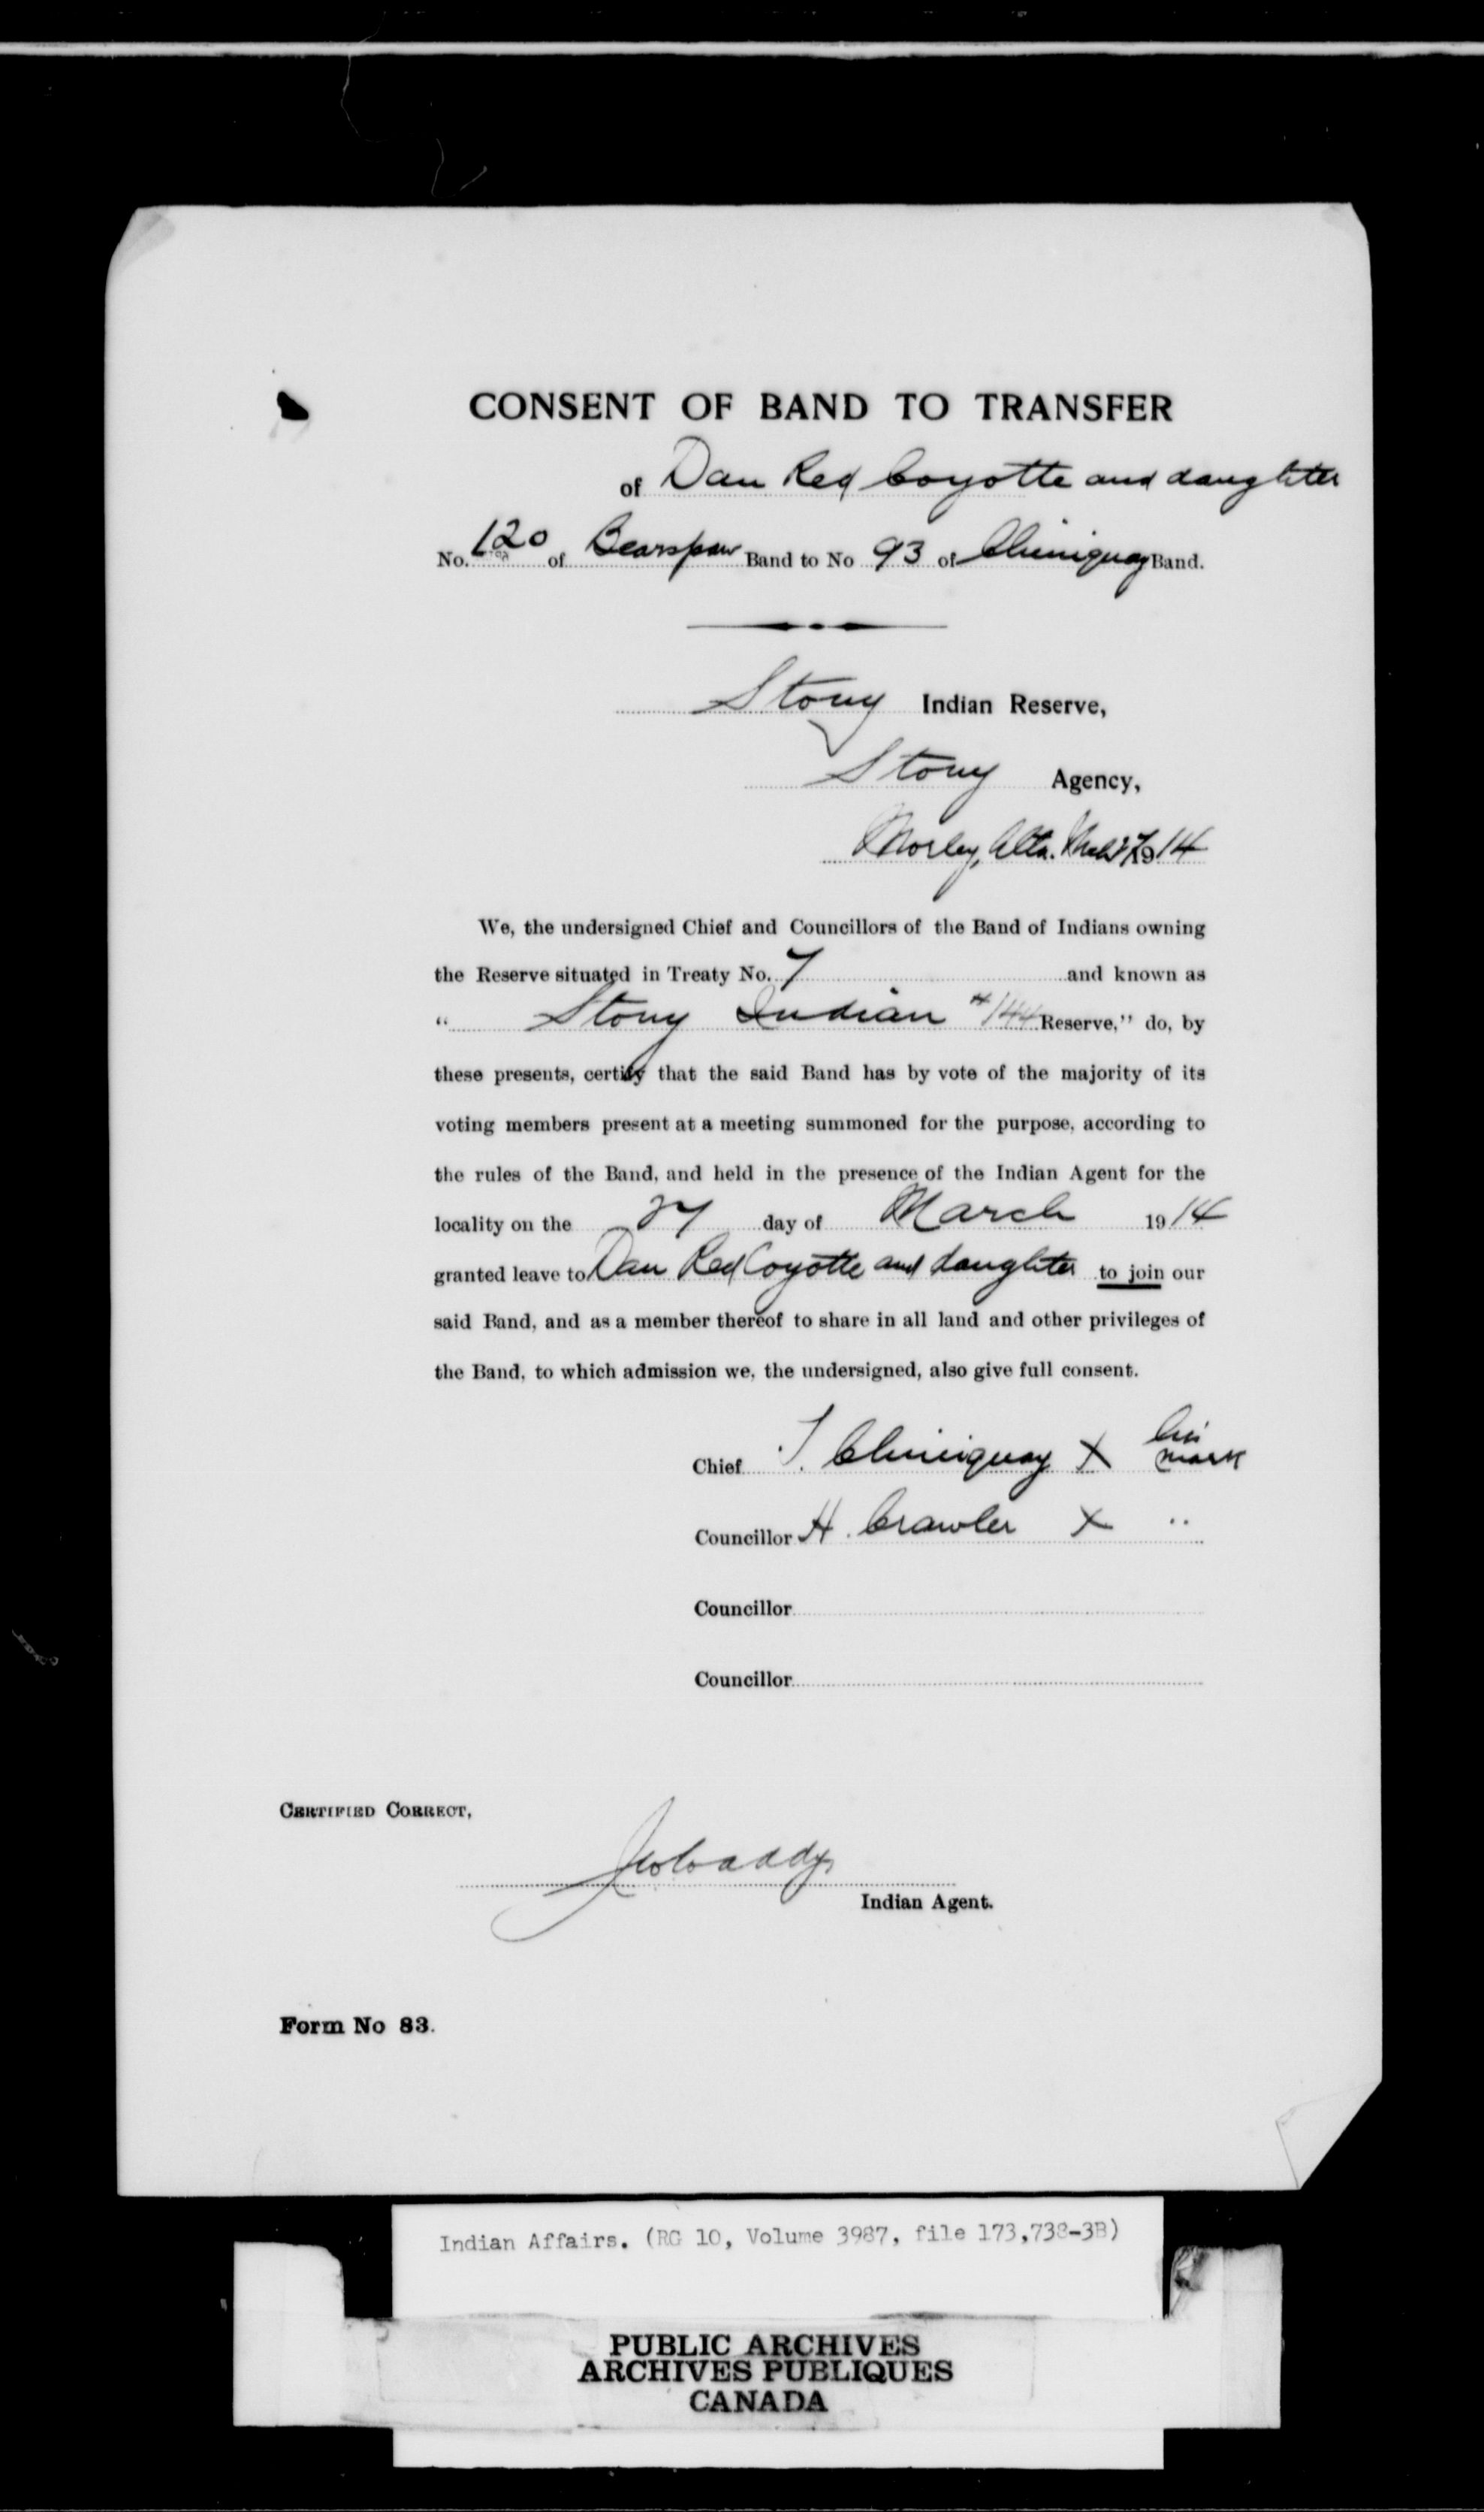 CONSENT OF BAND TO TRANSFER
of Dan Red Coyotte and daughter
No. 120 of Bearspaw Band to No 93 of Chiniquay Band.
Stony Indian Reserve,
Stony Agency,
Morley, Alta. 27 1914
We, the undersigned Chief and Councillors of the Band of Indians owning
the Reserve situated in Treaty No. 7 and known as
" Stony Indian #144 Reserve," do, by
these presents, certify that the said Band has by vote of the majority of its
voting members present at a meeting summoned for the purpose, according to
the rules of the Band, and held in the presence of the Indian Agent for the
locality on the 27 day of March 1914
granted leave to Dan Red Coyotte and daughter to join our
said Band, and as a member thereof to share in all land and other privileges of
the Band, to which admission we, the undersigned, also give full consent.
Chief J. Chiniquay X his mark
Councillor H. Crawler X "
Councillor
Councillor
CERTIFIED CORRECT,
J W Waddy
Indian Agent.
Form No 83.
Indian Affairs. (RG 10, Volume 3987, file 173,738-3B)
PUBLIC ARCHIVES
ARCHIVES PUBLIQUES
CANADA